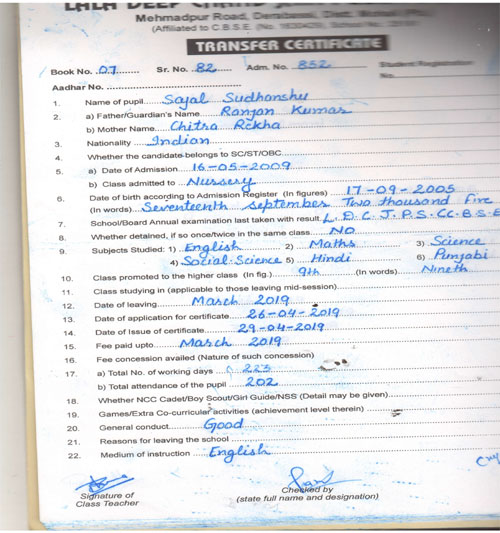 LALA DEEP CHAND
Mehmadpur Road, Derabassi,
(Affiliated to C.B.S.E.
TRANSFER CERTIFICATE
Book No. 07 Sr. No. 82 Adm. No. 852 Student/Registration No.
Aadhar No.
1. Name of pupil Sajal Sudhanshu
2. a) Father/Guardian's Name Ranjan Kumar
b) Mother Name Chitra Rekha
3. Nationality Indian
4. Whether the candidate belongs to SC/ST/OBC
5. a) Date of Admission 16-05-2009
b) Class admitted to Nursery
6. Date of birth according to Admission Register (In figures) 17-09-2005
(In words) Seventeenth september Two thousand Five
7. School/Board Annual examination last taken with result L.D.C.J.P.S. CC.B.S.E
8. Whether detained, if so once/twice in the same class NO
9. Subjects Studied: 1) English 2) Maths 3) Science
4) Social-Science 5) Hindi 6) Punjabi
10. Class promoted to the higher class (In fig.) 9th (In words) Nineth
11. Class studying in (applicable to those leaving mid-session)
12. Date of leaving March 2019
13. Date of application for certificate 26-04-2019
14. Date of Issue of certificate 29-04-2019
15. Fee paid upto March 2019
16. Fee concession availed (Nature of such concession)
17. a) Total No. of working days 223
b) Total attendance of the pupil 202
18. Whether NCC Cadet/Boy Scout/Girl Guide/NSS (Detail may be given)
19. Games/Extra Co-curricular activities (achievement level therein)
20. General conduct Good
21. Reasons for leaving the school
22. Medium of instruction English
Signature of Class Teacher
Checked by
(state full name and designation)